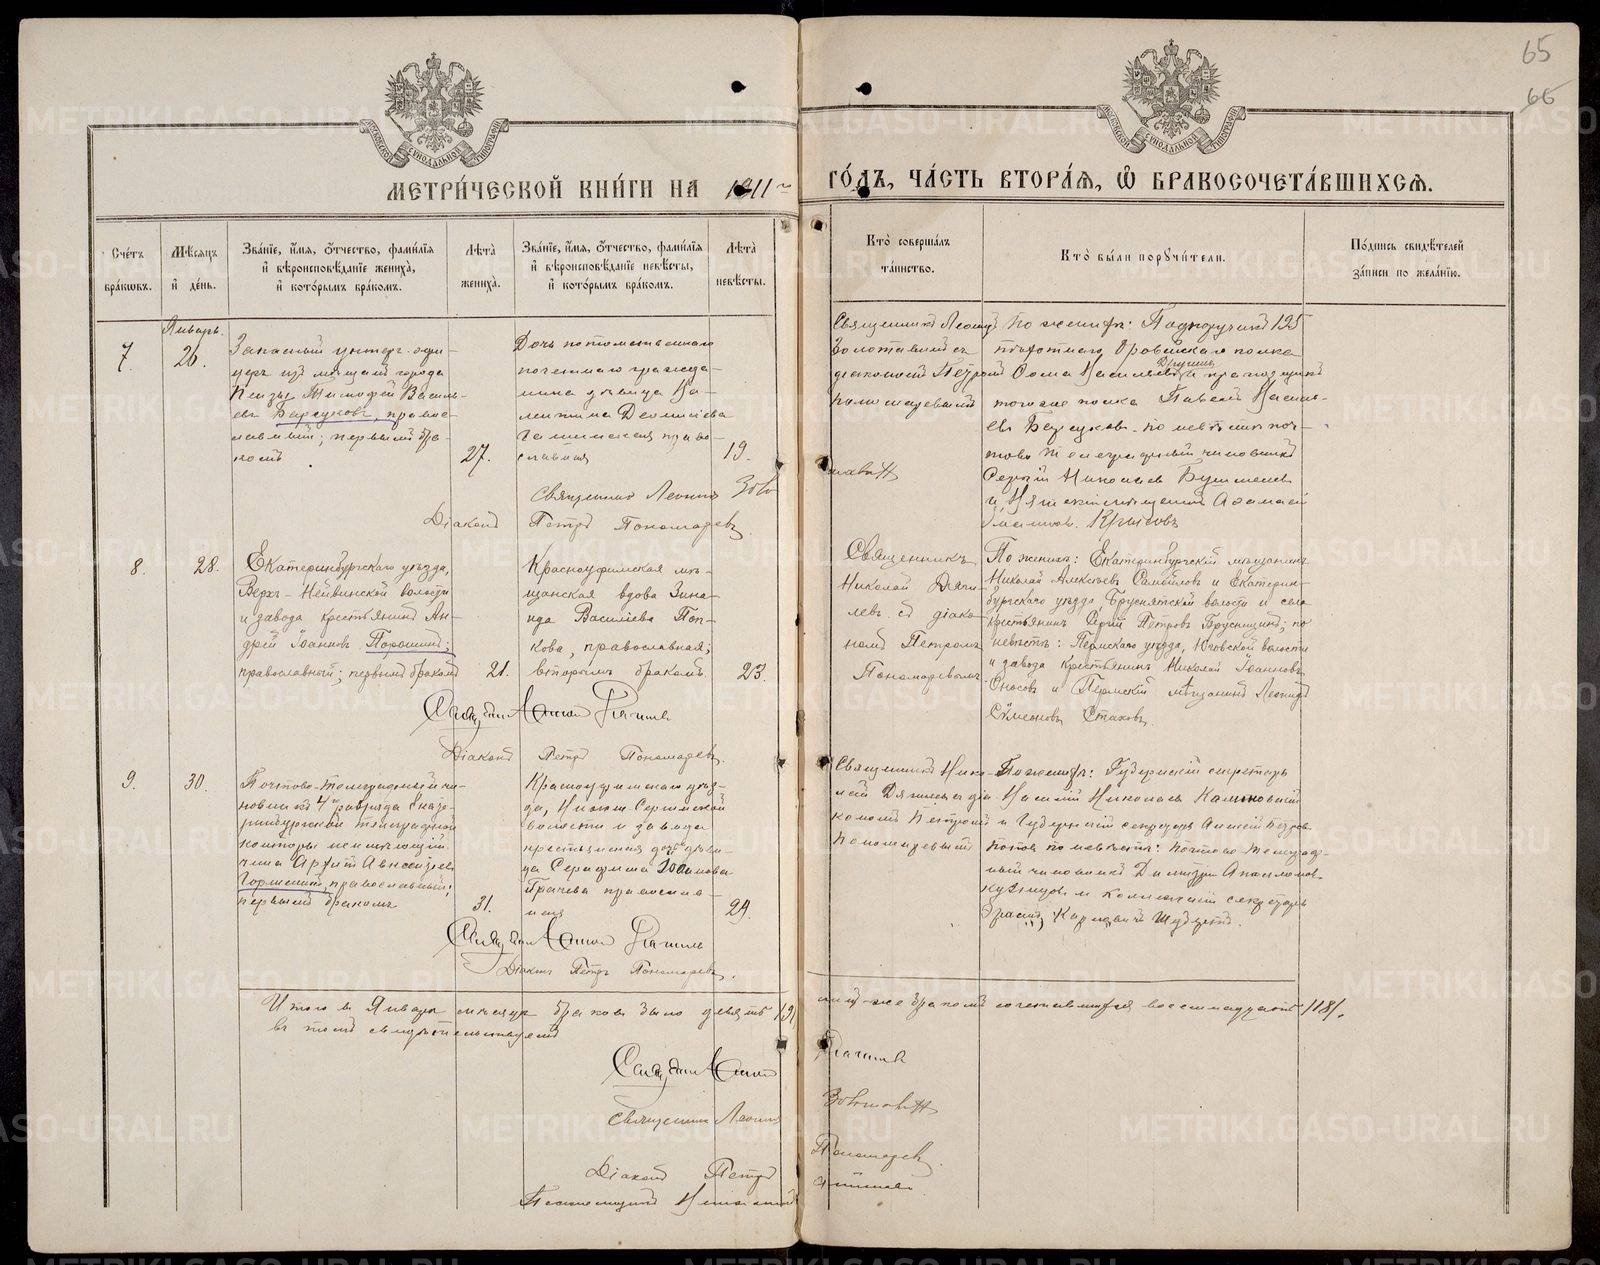 65
66
МОСКОВСКОЙ СѴНОДАЛЬНОЙ ТИПОГРАФІИ
МОСКОВСКОЙ СѴНОДАЛЬНОЙ ТИПОГРАФІИ
МЕТРИ́ЧЕСКОЙ КНИ́ГИ НА 1911 ГО́ДЪ, ЧА́СТЬ ВТОРА́Ѧ, Ѽ БРАКОСОЧЕТА́ВШИХСѦ.
Сче́тъ бра́кѡвъ.
Мѣ́сѧцъ и҆ де́нь.
Зва́нїе, и҆́мѧ, ѻ҆́тчество, фами́лїѧ и҆ вѣроисповѣ́данїе жениха̀, и҆ кото́рымъ бра́комъ.
Лѣ́та жениха̀.
Зва́нїе, и҆́мѧ, ѻ҆́тчество, фами́лїѧ и҆ вѣроисповѣ́данїе невѣ́сты, и҆ кото́рымъ бра́комъ.
Лѣ́та невѣ́сты.
Кто̀ соверша́лъ та́инство.
Кто̀ бы́ли порꙋчи́тели.
По́дпись свидѣ́телей за́писи по жела́нїю.
Январь.
7.
26.
Запасный унтеръ-офи-
церъ изъ мѣщанъ города
Пензы Тимофей Василь-
евъ Барсуковъ, право-
славный; первымъ бра-
комъ
27.
Дочь потомственнаго
почетнаго гражда-
нина дѣвица Ва-
лентина Деонисіева
православная
19.
Священникъ Леонидъ
Золотавинъ съ
діакономъ Петромъ
Пономаревымъ
По женихѣ: Подпоручикъ 195
пѣхотнаго Оровайскаго полка
Ѳома Васильевъ Дягинъ и прапорщикъ
того же полка Павелъ Василь-
евъ Барсуковъ. по невѣстѣ поч-
тово телеграфный чиновникъ
Сергѣй Николаевъ
и Вятскій мѣщанинъ
Крысовъ
Священникъ Леонидъ Золотавинъ
Діаконъ Петръ Пономаревъ
8.
28.
Екатеринбургскаго уѣзда,
Верхъ-Нейвинской волости
и завода крестьянинъ Ан-
дрей Іоанновъ Порошинъ;
православный; первымъ бракомъ
21.
Красноуфимская мѣ-
щанская вдова Зина-
ида Василіева Поп-
кова, православная;
вторымъ бракомъ
23.
Священникъ
Николай Дяги-
левъ съ діако-
номъ Петромъ
Пономаревымъ
По женихѣ: Екатеринбургскій мѣщанинъ
Николай Алексѣевъ Самойловъ и Екатерин-
бургскаго уѣзда, Бруснятской волости и села
крестьянинъ Сергій Петровъ Брусницынъ; по
невѣстѣ: Пермскаго уѣзда, Юговской волости
и завода крестьянинъ Николай Іоанновъ
Оносовъ и Пермскій мѣщанинъ Леонидъ
Сѵмеоновъ Стаховъ.
Діаконъ Петръ Пономаревъ.
9.
30.
Почтово-телеграфный чи-
новникъ 4го разряда Екате-
ринбургской телеграфной
конторы неимѣющій
чина
православный;
первымъ бракомъ
31.
Красноуфимскаго уѣз-
да, Нижне Сергинской
волости и завода
крестьянская дочь дѣви-
ца Серафима Іоаннова
Грачева православ-
ная
24.
Священникъ Нико-
лай Дягилевъ съ діа-
кономъ Петромъ
Пономаревымъ
По женихѣ: Губернскій секретарь
Василій Николаевъ Калиновскій
и Губернскій секретарь Алексѣй Петровъ
Поповъ по невѣстѣ: почтово телеграф-
ный чиновникъ Димитрій
Кузнецовъ и Коллежскій секретарь
Діаконъ Петръ Пономаревъ.
Итого въ Январѣ мѣсяцѣ браковъ было девять /9/, ими-же бракомъ сочетавшихся восемнадцать /18/.
въ томъ свидѣтельствуемъ
Священникъ Леонидъ Золотавинъ
Діаконъ Петръ Пономаревъ.
Псаломщикъ
METRIKI.GASO-URAL.RU